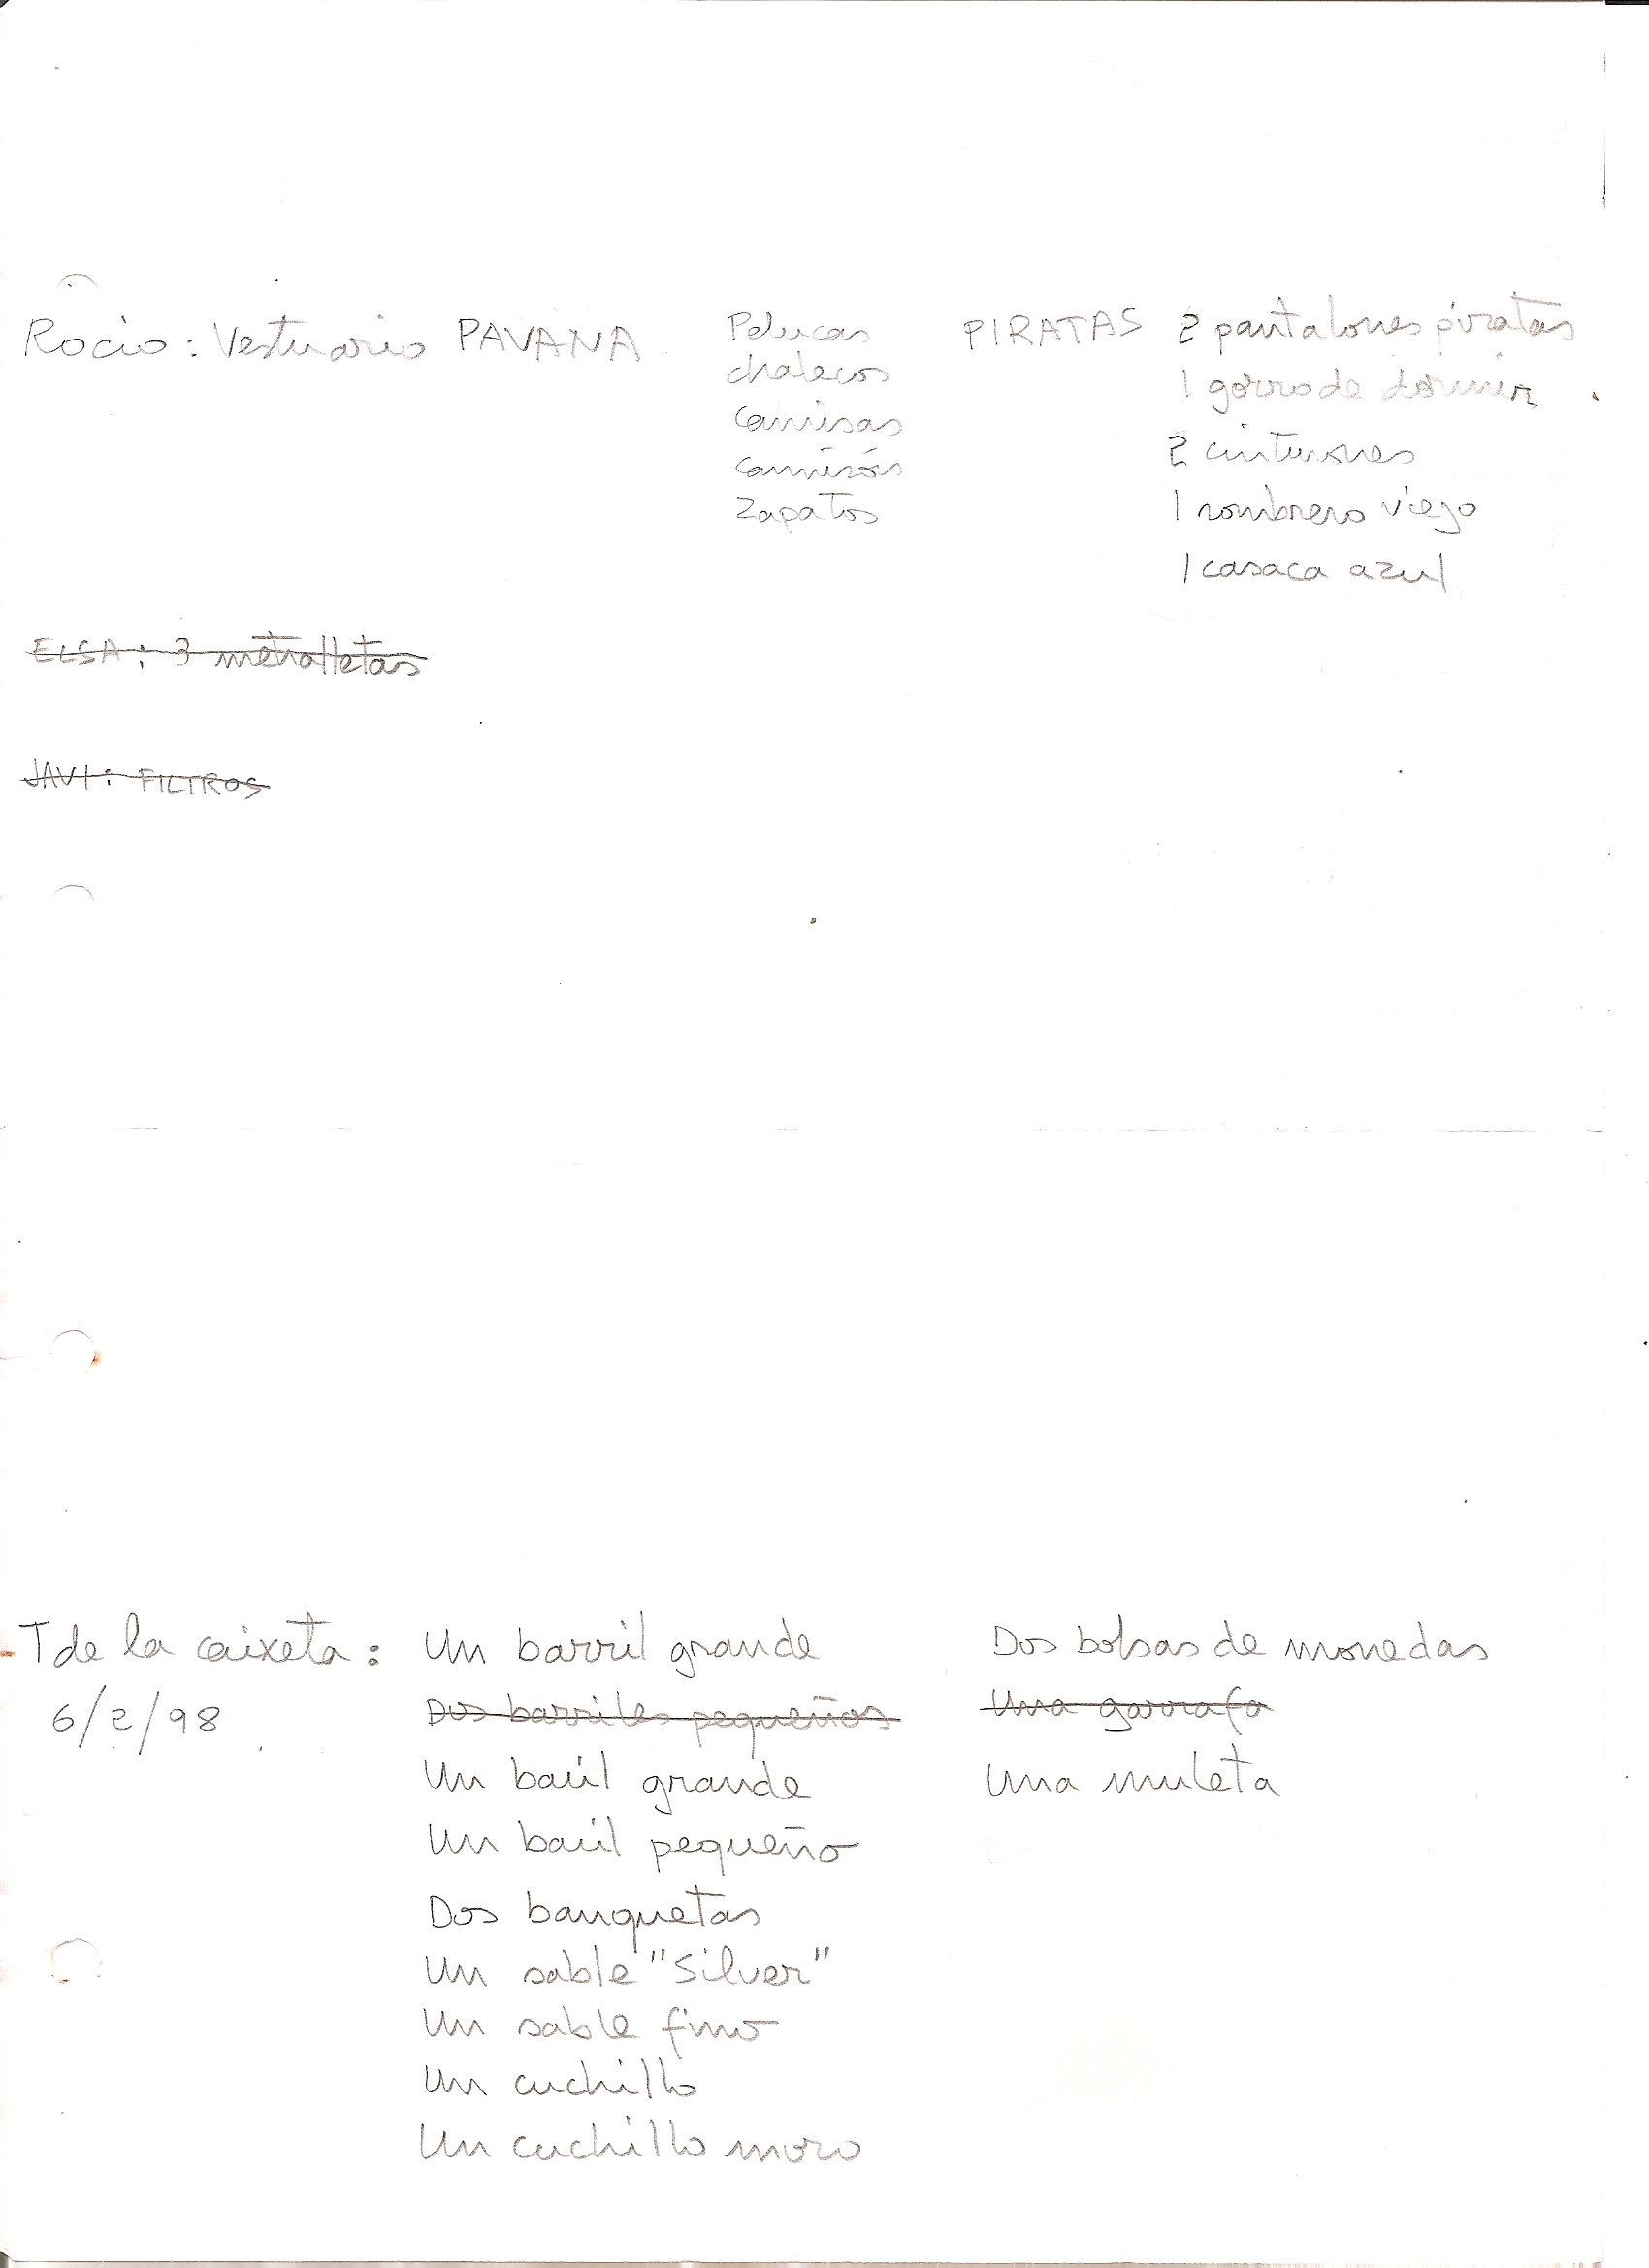 Rocio: Vestuario PAVANA
Pelucas
chalecos
Camisas
Camisón
Zapatos
PIRATAS
2 pantalones piratas
1 gorro de dormir
2 cinturones
1 sombrero viejo
1 casaca azul
ELSA: 3 metralletas
JAVI: FILTROS
T de la caixeta:
6/2/98
Un barril grande
Dos barriles pequeños
Un baúl grande
Un baúl pequeño
Dos banquetas
Un sable "Silver"
Un sable fino
Un cuchillo
Un cuchillo moro
Dos bolsas de monedas
Una garrafa
Una muleta